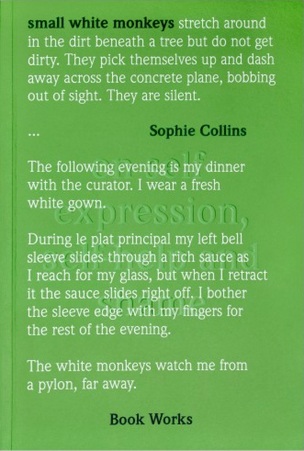 small white monkeys stretch around
in the dirt beneath a tree but do not get
dirty. They pick themselves up and dash
away across the concrete plane, bobbing
out of sight. They are silent.
... Sophie Collins
The following evening is my dinner
with the curator. I wear a fresh
white gown.
During le plat principal my left bell
sleeve slides through a rich sauce as
I reach for my glass, but when I retract
it the sauce slides right off. I bother
the sleeve edge with my fingers for
the rest of the evening.
The white monkeys watch me from
a pylon, far away.
on self-
expression,
self-help and
shame
Book Works